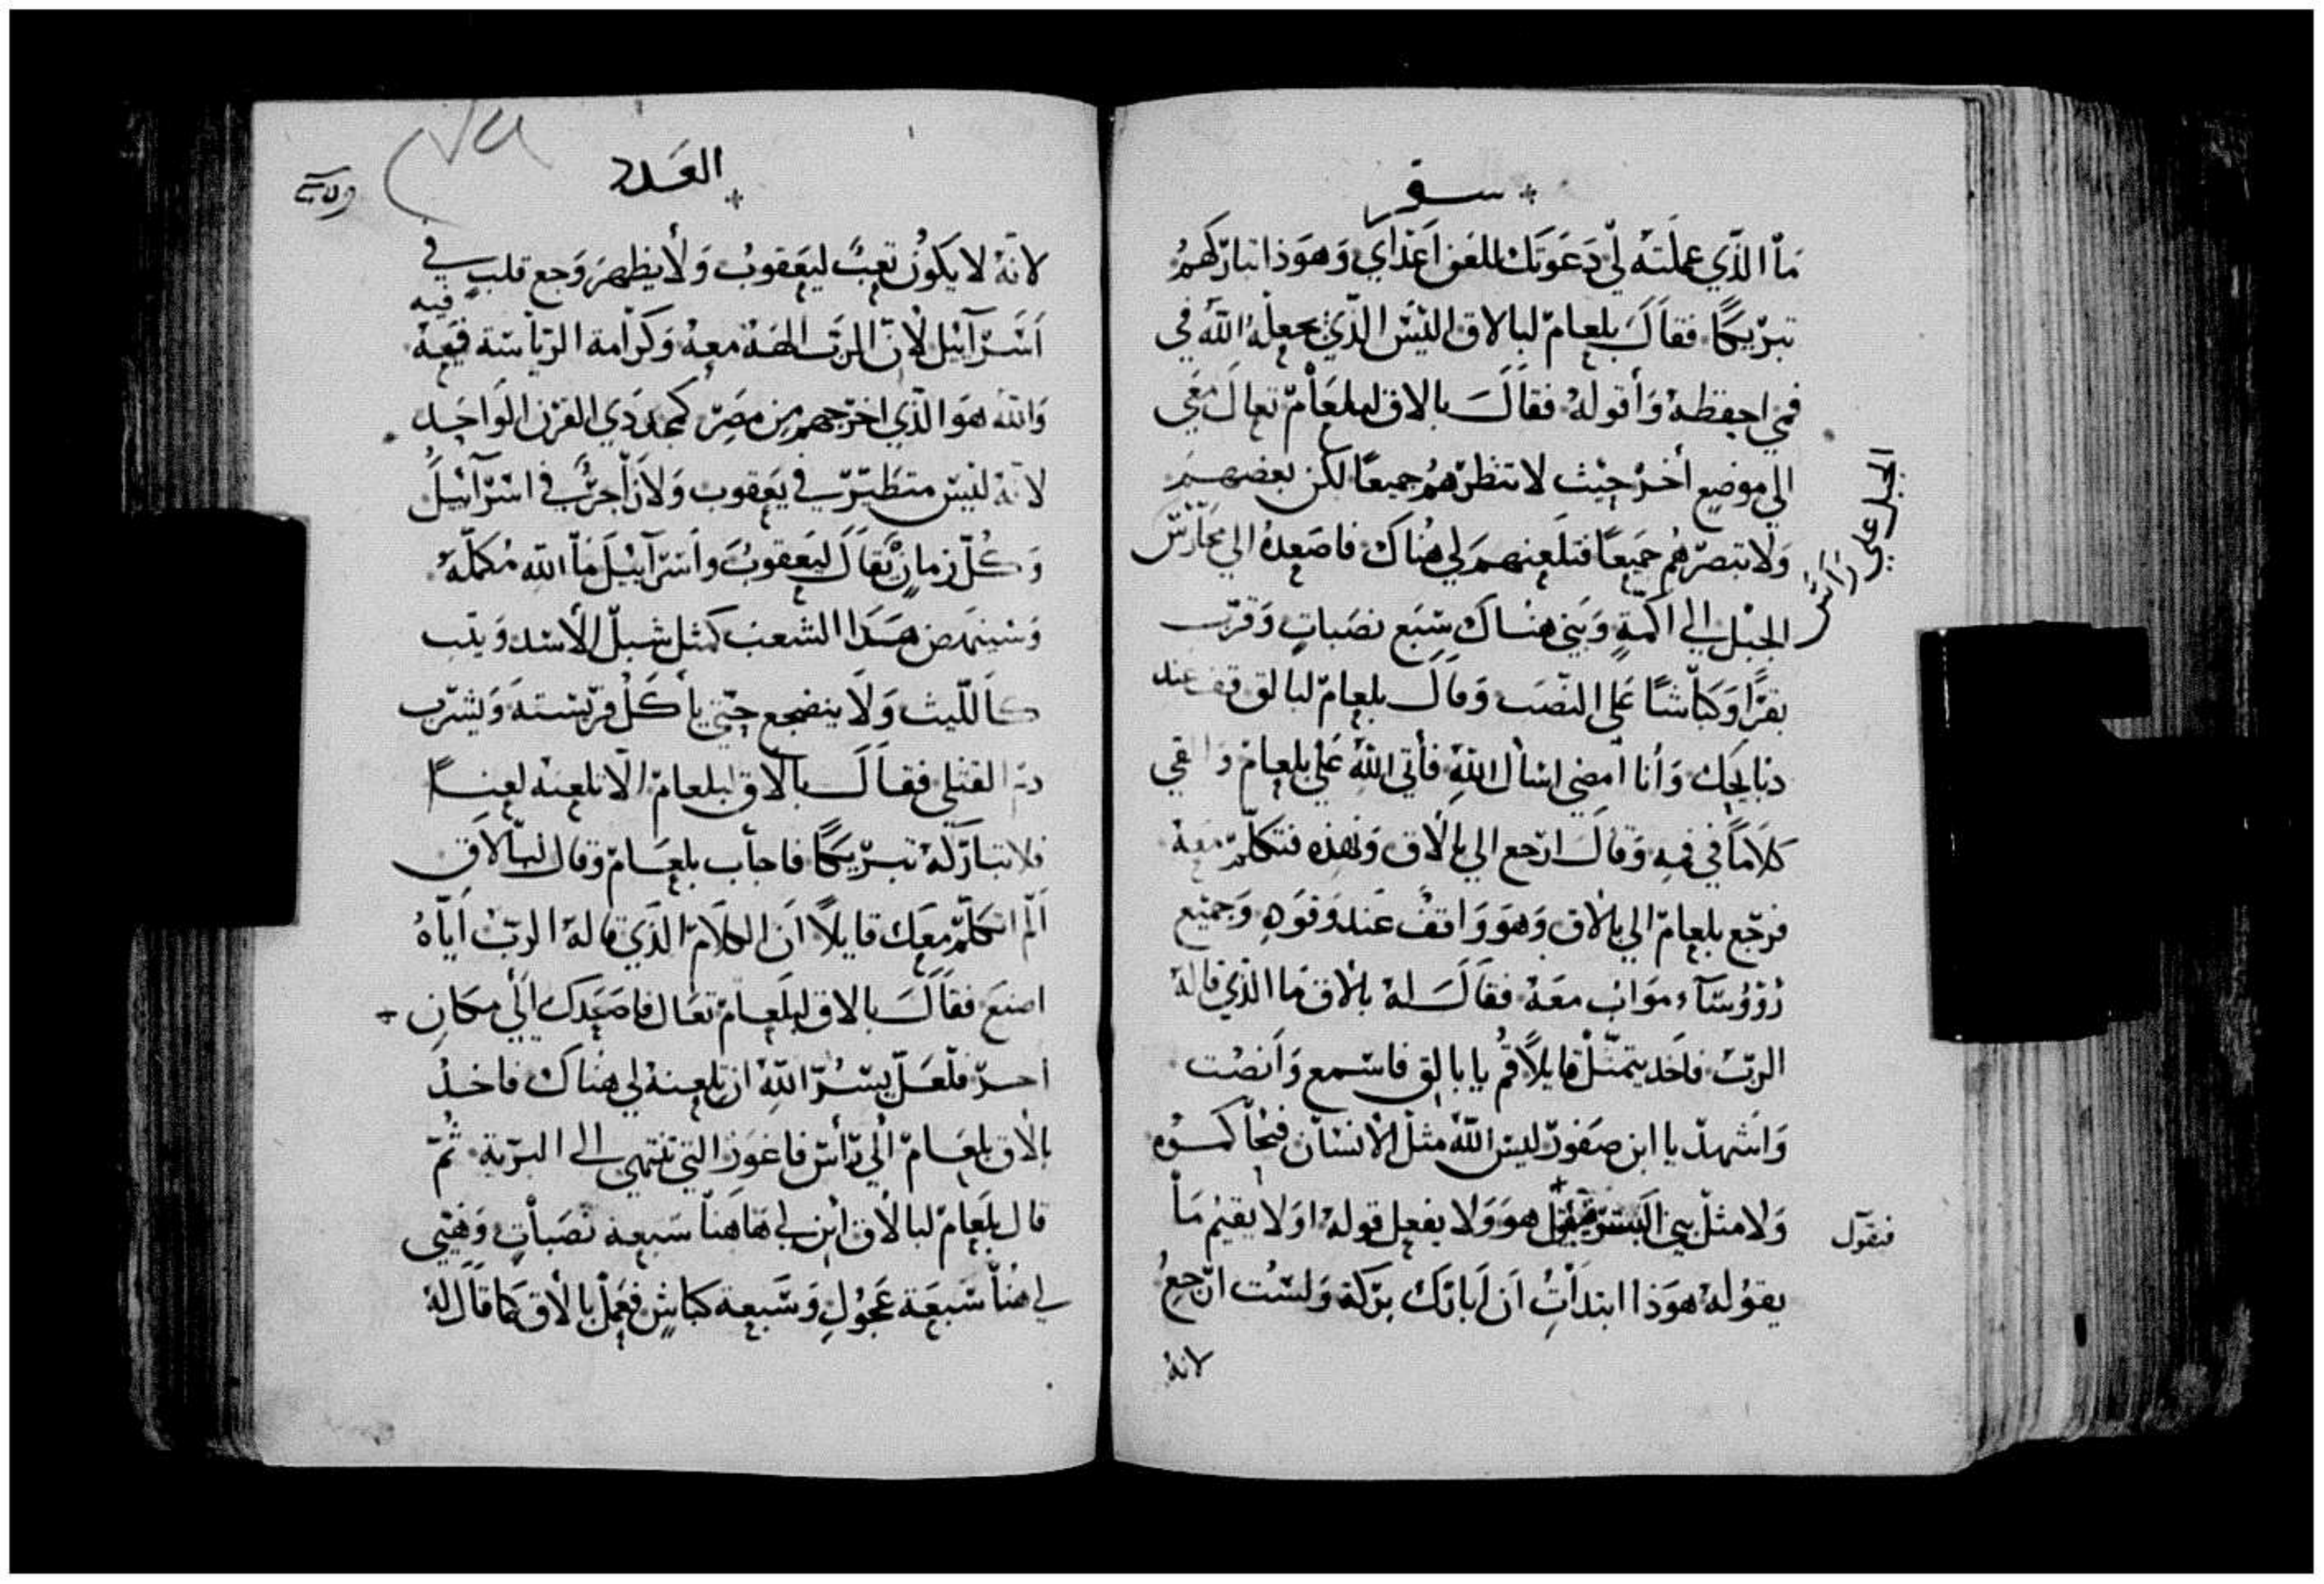 سفر
مَا الذَّي عملته لي دَعَوَتك لِلعَن اَعدَاي وَهوَذا تباركهُم
تبريكًا فقالَ بلعام لبالاق اليس الذي يجعله الله في
فمي احفظهُ وَأقولهُ فقالَ بالاق لبلعام تعالَ معي
الي موضع أخر حيث لا تنظرهُم جميعًا لكن بعضهم
وَلا تبصرهُم جَميعًا فتلعنهم لي هناك فاصعده الي محارس
الجبل الي اكمة وَبَني هناك سبع نصَبات وَقرب
الجبل علي رَاس
بقرًا وَكباشًا عَلي النصَب وَقالَ بلعام لبالق قف عند
دبايحك وَأنا أمضي اسأل الله فأتي الله علي بلعام وَالقي
كلامًا في فيهِ وَقالَ ارجع الي بالاق وَبهذه فتكلم معهُ
فرجع بلعام الي بالاق وَهوَ وَاقف عَند وَقوَدِهِ وَجميع
رُؤوُسَآء موَاب معَهُ فقالَ له بالاق مَا الذي قالهُ
الربّ فاخد يتمثل قايلاً قُم يا بالق فاسمع وَانصت
وَاشهد يا ابن صَفورّ ليس الله مثل الأنسان فيحاكموه
وَلا مثل بني البشر هوَ وَلا يفعل قولهُ اوَلا يقيم مَا
فيقول
يقوُله هوَذا ابتدَأت اَن اَبارك بركة وَلست ارّجعُ
لانهُ
العَدد
لانهُ لا يكونُ تعبٌ ليعقوبُ وَلا يظهرَ وَجع قلبٍ في
اَسرآئيل لأنّ الربّ الههُ معهُ وَكرامة الرياسَة فيه
وَالله هوَ الذّي اخرجهم من مصَر كمجد دي القرن الوَاحِد
لانهُ ليس متطيّر في يَعقوب وَلا زاجر في اسرآئيلَ
وَكُلّ زمانٍ يُقالَ ليَعقوبُ وَاسرآئيلَ مَا الله مُكملهُ
وَسينهض هَدا الشعب كمثل شبل الأسد وَيثب
كاَلليث وَلا ينضجع حتّي يأكلُ فريسَتهَ وَيشرب
دمّ القتلي فقالَ بالاق لبلعام الا تلعنهُ لعنًا
فلا تباركهُ تبريكًا فاجأب بلعام وَقال لبالاق
اَلم اتكلم معَك قايلاً ان الكلام الذَي قالهُ الربّ اَياهُ
اصنعَ فقالَ بالاق لبلعام تعَال فاصَعِدك الَي مكانٍ
اخر فلعَلّ يسُر الله ان تلعنهُ لي هناك فاخدُ
بالاق بلعام الَي رأس فاغوَر التي تنتهي الي البرّية ثُمّ
قال بلعام لبالاق ابن لي هاهَنا سَبعة نصَباتٍ وَهيي
لي هُنا سَبعَة عجوُلٍ وَسَبعة كباشٍ فعَمِل بالاق كما قالَ لهُ